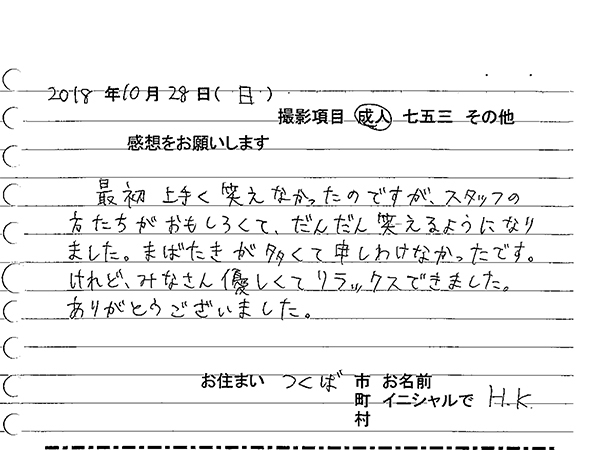 2018 年10月28日(日)
撮影項目 成人 七五三 その他
感想をお願いします
最初 上手く笑えなかったのですが、スタッフの
方たちがおもしろくて、だんだん笑えるようになり
ました。まばたきが多くて申しわけなかったです。
けれど、みなさん優しくてリラックスできました。
ありがとうございました。
お住まい つくば 市 お名前
町 イニシャルで H.K.
村